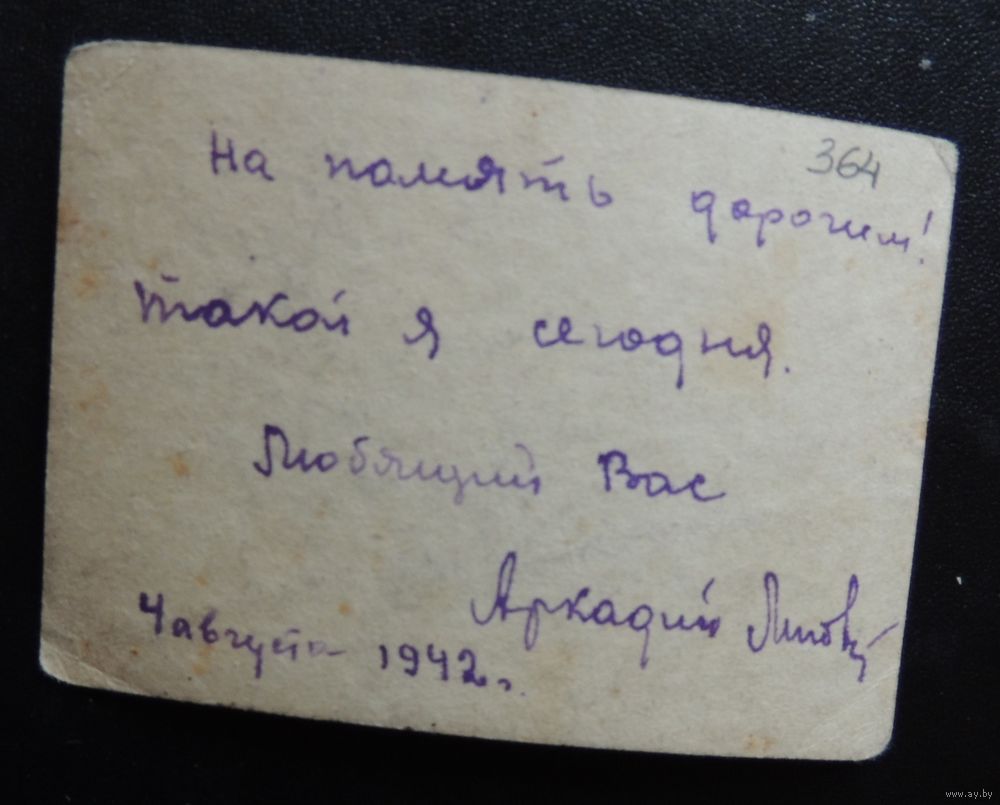 364
На память дорогим!
такой я сегодня.
Любящий Вас
Аркадий
4 августа 1942 г.
www.ay.by